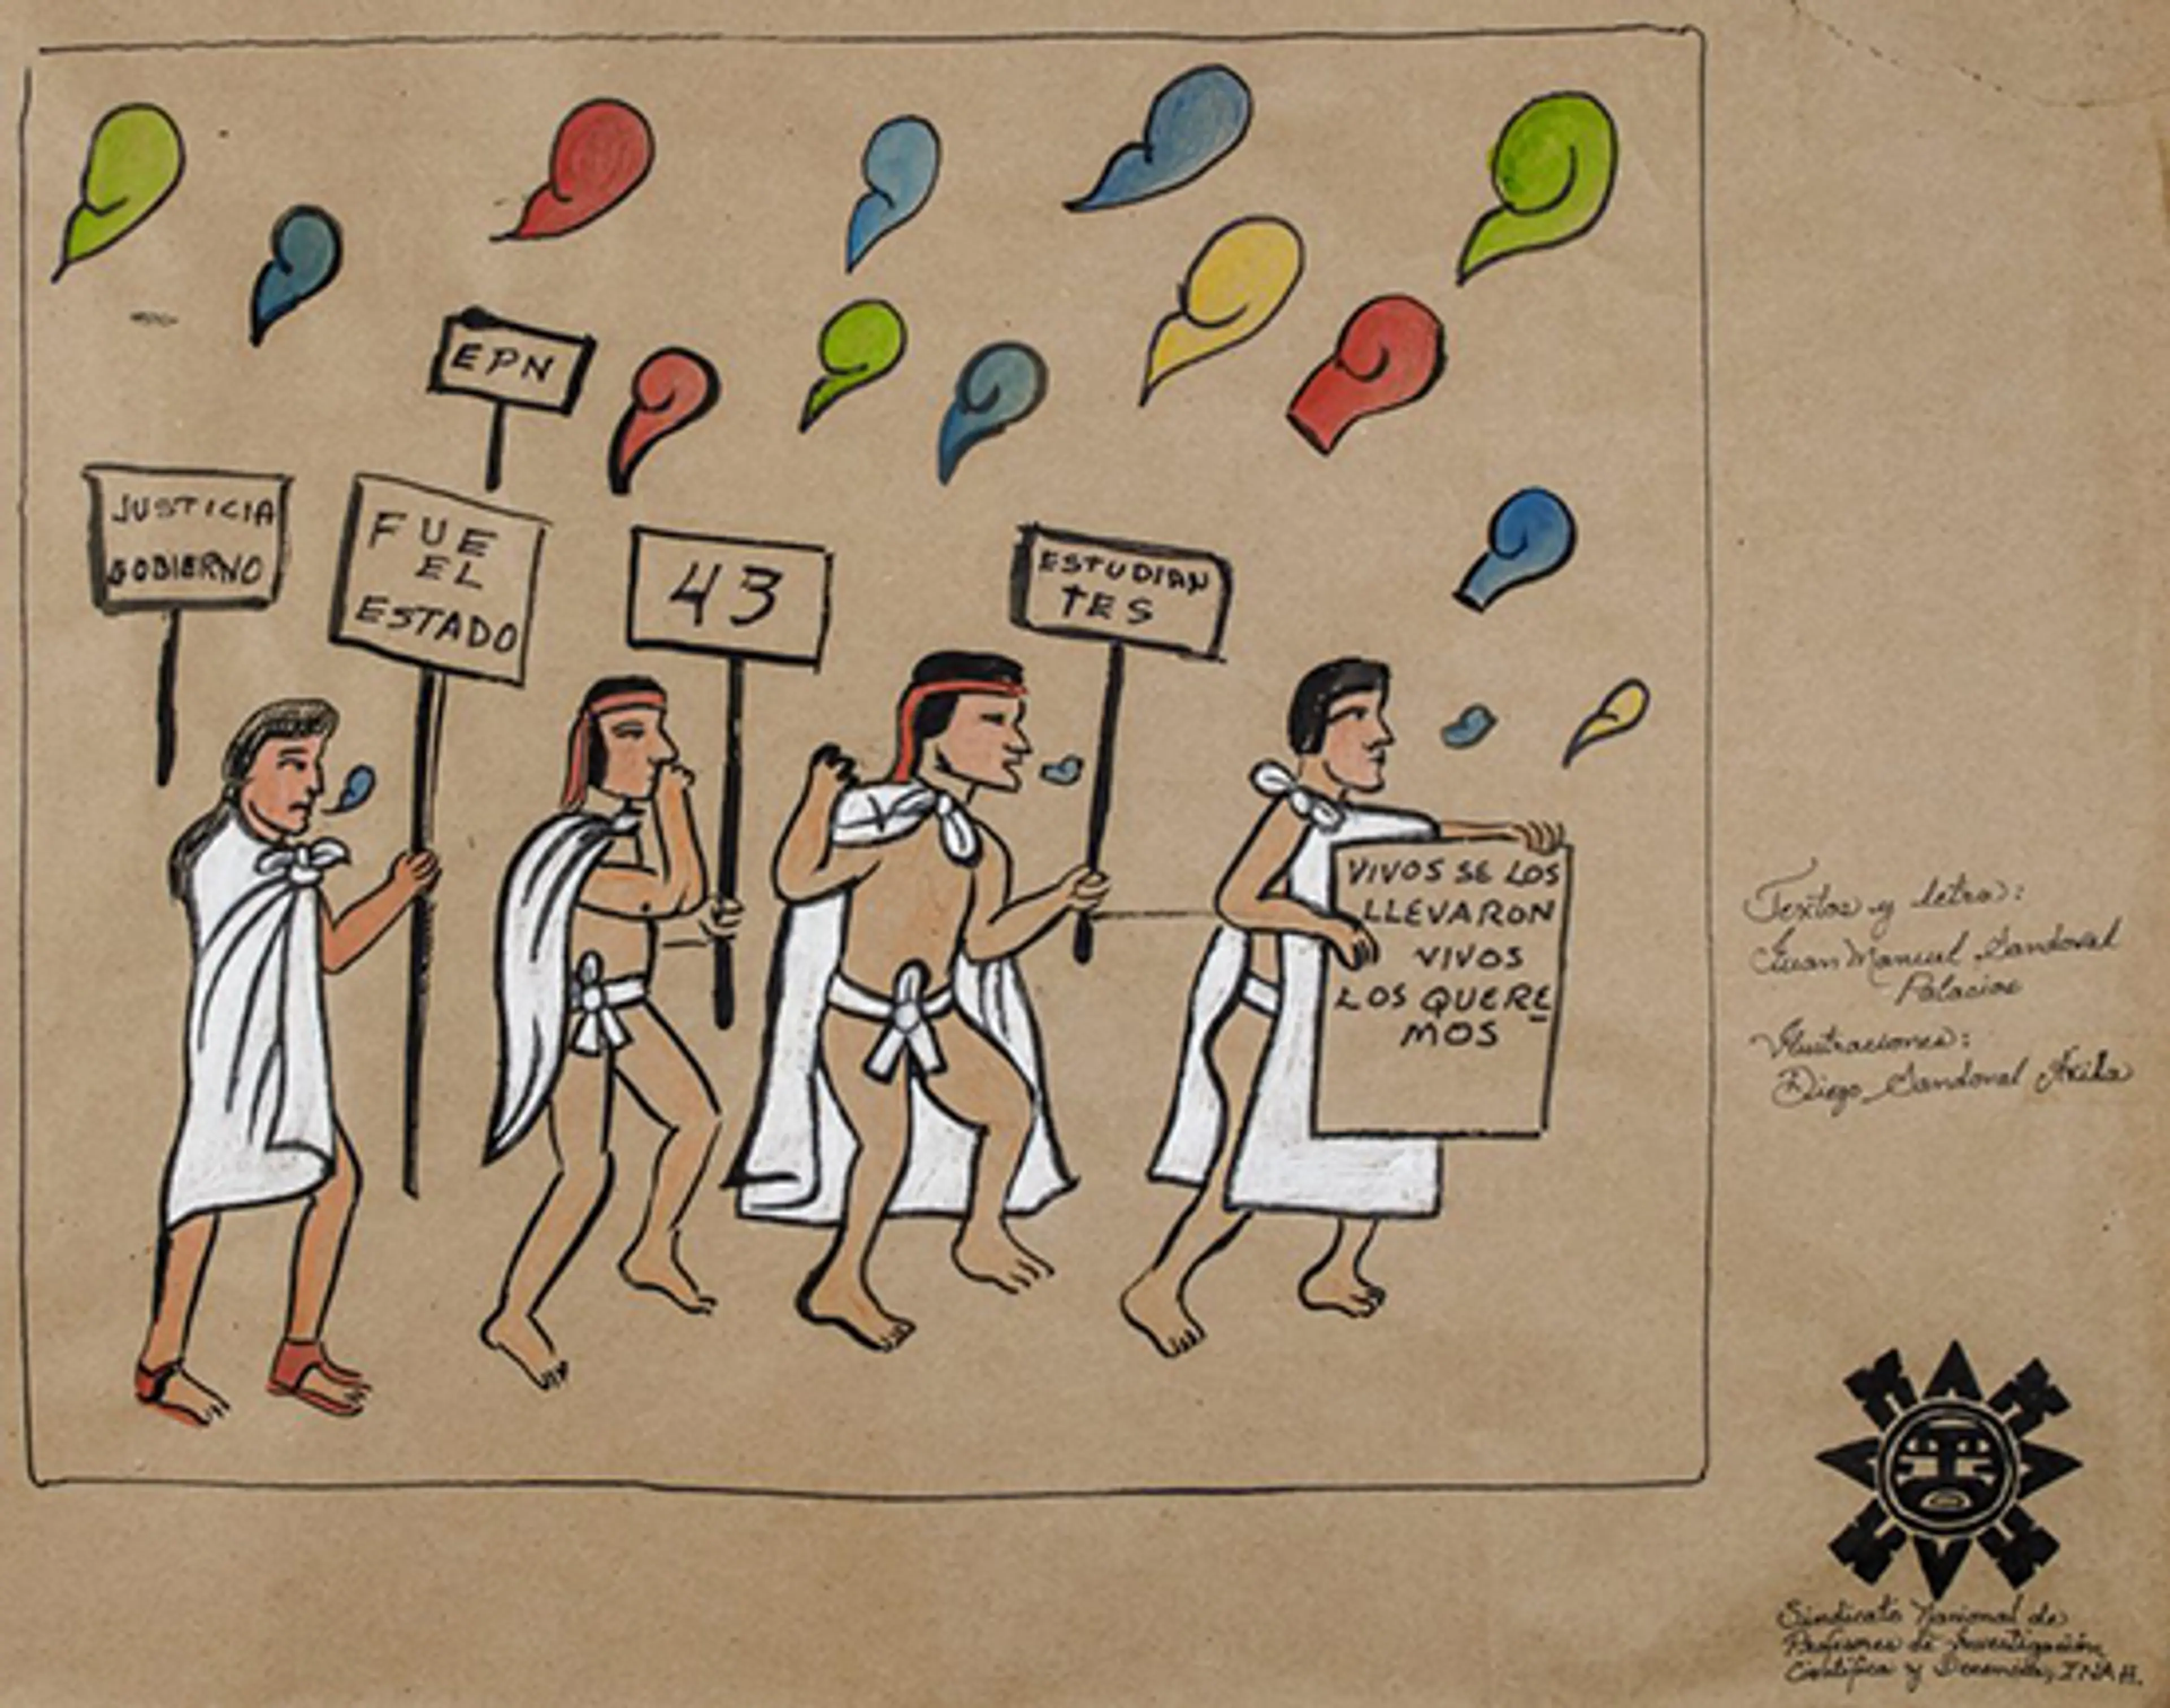 EPN
JUSTICIA
GOBIERNO
FUE
EL
ESTADO
43
ESTUDIAN
TES
VIVOS SE LOS
LLEVARON
VIVOS
LOS QUERE
MOS
Textos y letra:
Juan Manuel Sandoval
Palacios
Ilustraciones:
Diego Sandoval Ávila
Sindicato Nacional de
Profesores de Investigación
Científica y Docencia, INAH.